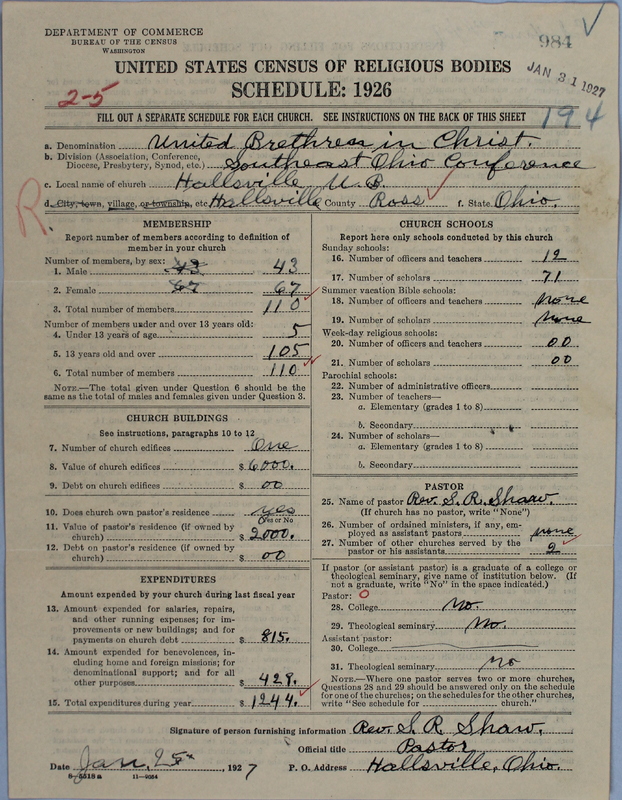 DEPARTMENT OF COMMERCE
BUREAU OF THE CENSUS
WASHINGTON
984
JAN 31 1927
UNITED STATES CENSUS OF RELIGIOUS BODIES
SCHEDULE: 1926
2-5
FILL OUT A SEPARATE SCHEDULE FOR EACH CHURCH. SEE INSTRUCTIONS ON THE BACK OF THIS SHEET
194
a. Denomination United Brethren in Christ.
b. Division (Association, Conference, Diocese, Presbytery, Synod, etc.) Southeast Ohio Conference
c. Local name of church Hallsville U. B.
d. City, town, village, or township, etc Hallsville County Ross f. State Ohio.
R.
MEMBERSHIP
Report number of members according to definition of
member in your church
Number of members, by sex:
1. Male 43 43
2. Female 67 67
3. Total number of members 110
Number of members under and over 13 years old:
4. Under 13 years of age 5
5. 13 years old and over 105
6. Total number of members 110
NOTE.—The total given under Question 6 should be the
same as the total of males and females given under Question 3.
CHURCH BUILDINGS
See instructions, paragraphs 10 to 12
7. Number of church edifices One
8. Value of church edifices $ 6000.
9. Debt on church edifices $ 00
10. Does church own pastor's residence yes
(Yes or No)
11. Value of pastor's residence (if owned by
church) $ 2000.
12. Debt on pastor's residence (if owned by
church) $ 00
EXPENDITURES
Amount expended by your church during last fiscal year
13. Amount expended for salaries, repairs,
and other running expenses; for im-
provements or new buildings; and for
payments on church debt $ 815.
14. Amount expended for benevolences, in-
cluding home and foreign missions; for
denominational support; and for all
other purposes $ 429.
15. Total expenditures during year $ 1244.
CHURCH SCHOOLS
Report here only schools conducted by this church
Sunday schools:
16. Number of officers and teachers 12
17. Number of scholars 71
Summer vacation Bible schools:
18. Number of officers and teachers none
19. Number of scholars none
Week-day religious schools:
20. Number of officers and teachers 00
21. Number of scholars 00
Parochial schools:
22. Number of administrative officers
23. Number of teachers—
a. Elementary (grades 1 to 8)
b. Secondary
24. Number of scholars—
a. Elementary (grades 1 to 8)
b. Secondary
PASTOR
25. Name of pastor Rev. S. R. Shaw.
(If church has no pastor, write "None")
26. Number of ordained ministers, if any, em-
ployed as assistant pastors none
27. Number of other churches served by the
pastor or his assistants 2
If pastor (or assistant pastor) is a graduate of a college or
theological seminary, give name of institution below. (If
not a graduate, write "No" in the space indicated.)
Pastor: O
28. College no.
29. Theological seminary no.
Assistant pastor:
30. College
31. Theological seminary no
NOTE.—Where one pastor serves two or more churches,
Questions 28 and 29 should be answered only on the schedule
for one of the churches; on the schedules for the other churches,
write "See schedule for church."
Signature of person furnishing information Rev. S. R. Shaw.
Official title Pastor
Date Jan. 25th, 1927 P. O. Address Hallsville, Ohio.
8-5518 a 11-9064